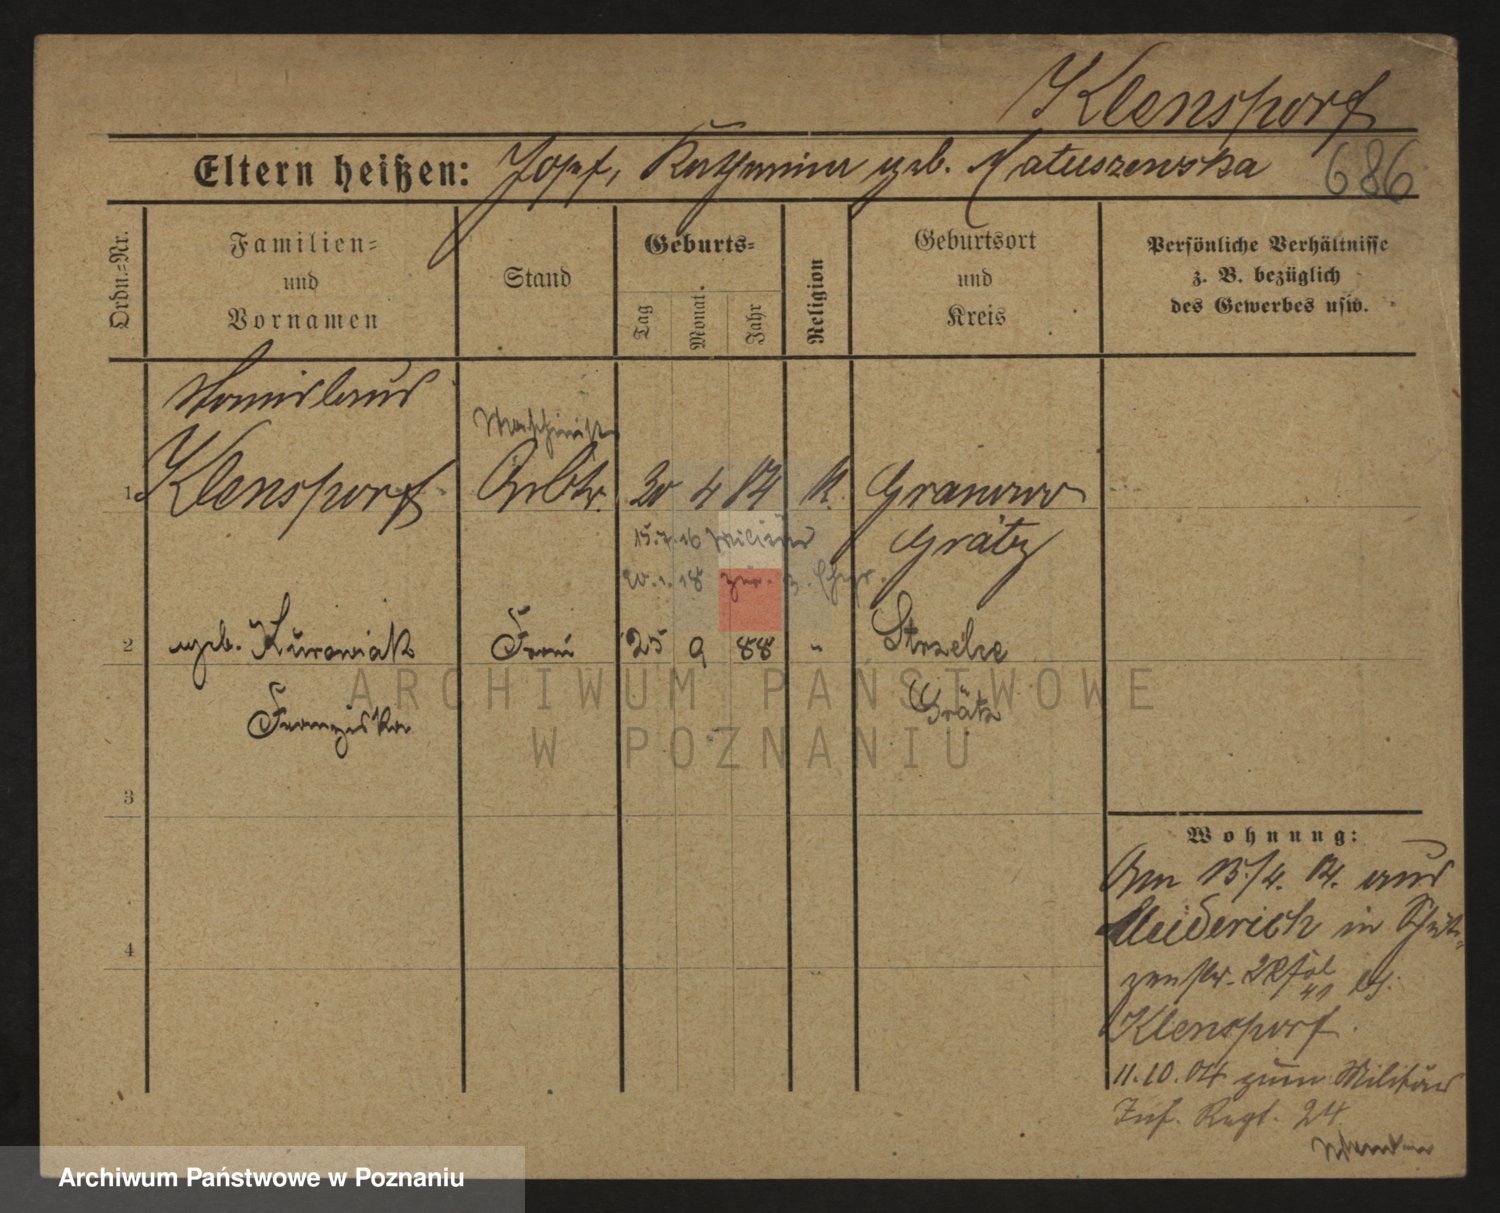 Klensporf
Eltern heißen: Josef, Katharina geb. Matuszewska 686
Ordn.-Nr.
Familien-
und
Vornamen
Stand
Geburts-
Tag
Monat
Jahr
Religion
Geburtsort
und
Kreis
Persönliche Verhältnisse
z. B. bezüglich
des Gewerbes usw.
Stanislaus
Maschinist
1 Klensporf Arbtr. 20 4 84 K. Granowo
15.7.16 Militär Grätz
20.1.18 zur
2 geb. Kurowiak Frau 25 9 88 " Strzelce
Franziska Grätz
3
4
Wohnung:
Am 13/4. 04. aus
Meiderich in Schüt-
zenstr. 22
Klensporf.
11.10.04 zum Militär
Inf. Regt. 24
ARCHIWUM PAŃSTWOWE
W POZNANIU
Archiwum Państwowe w Poznaniu